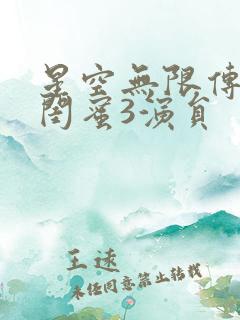 星空無限傳
閨蜜3-演員
王逑
未任同意禁止转载